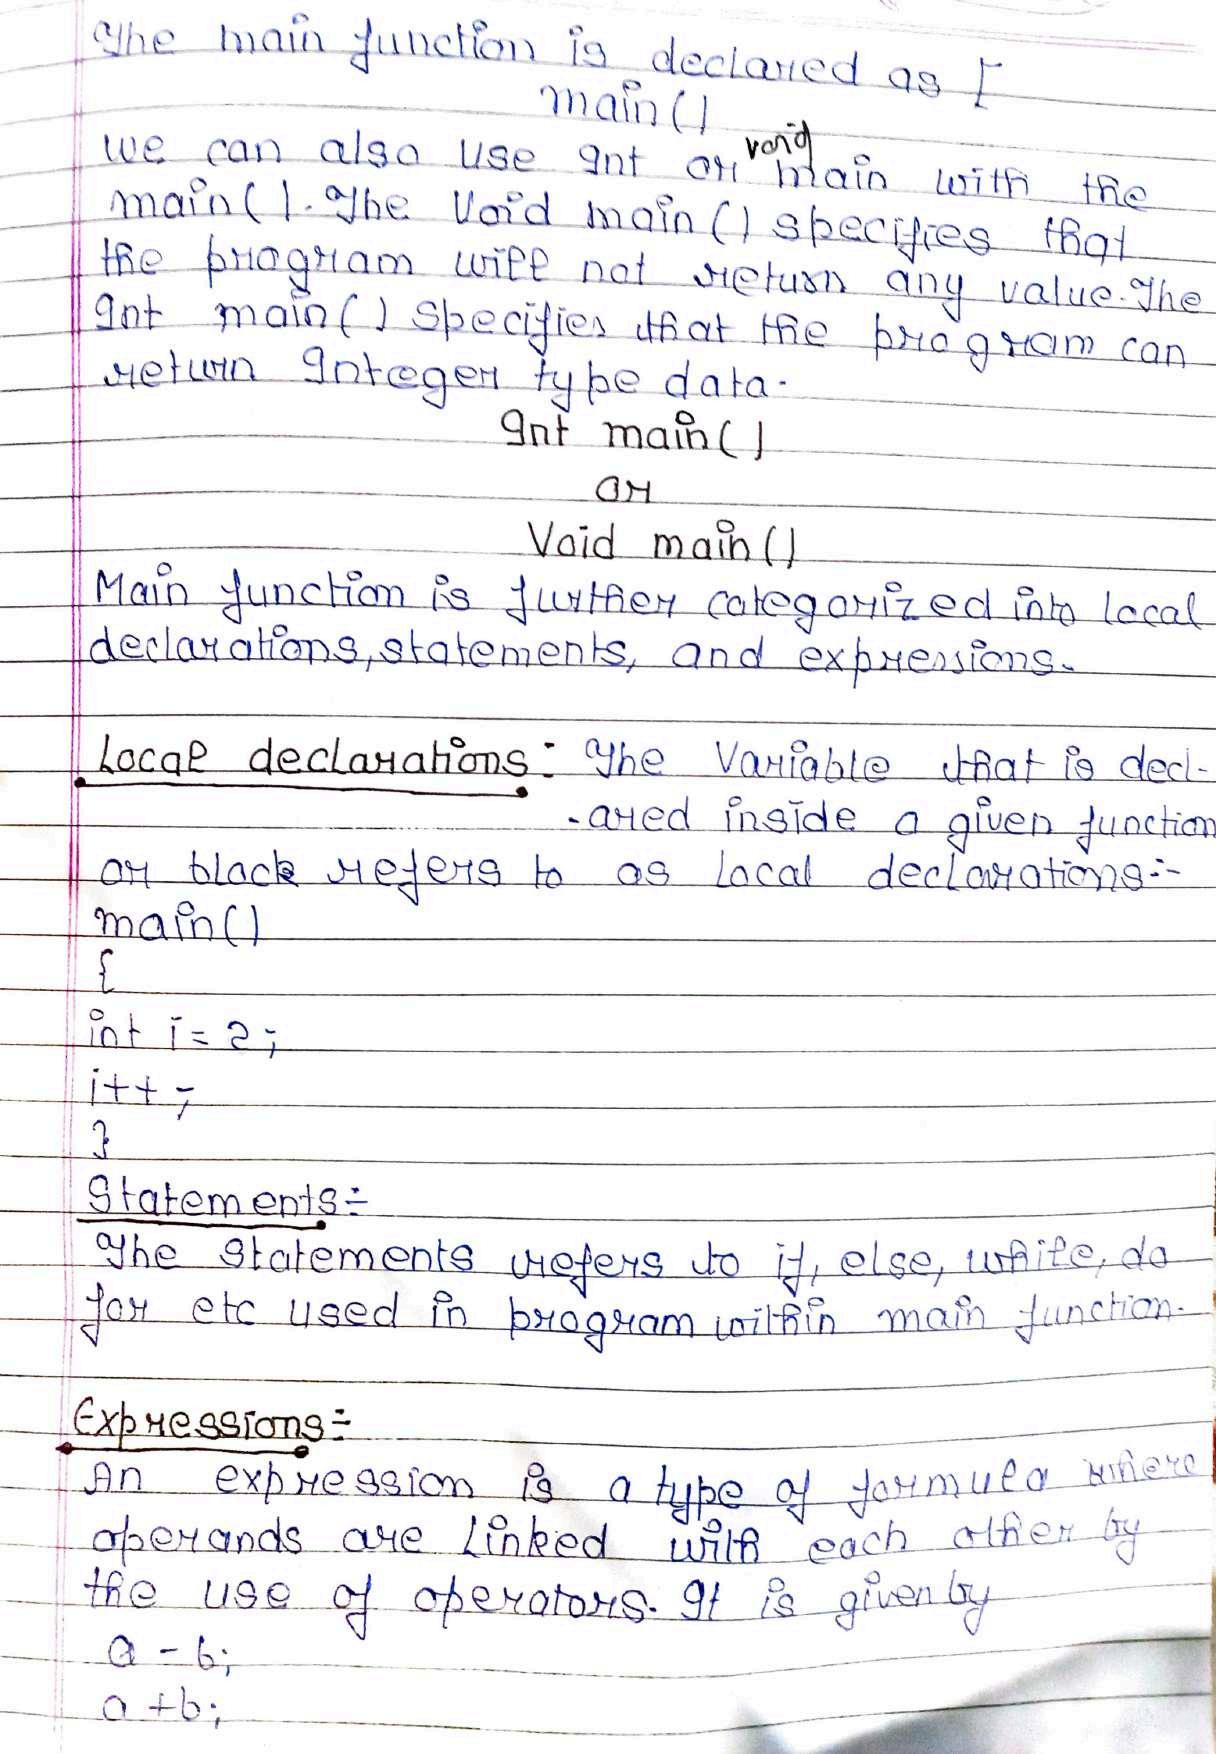 The main function is declared as [
main()
we can also use Int or void main with the
main(). The Void main() specifies that
the program will not return any value. The
Int main() Specifies that the program can
return Integer type data.
Int main()
or
Void main()
Main function is further categorized into local
declarations, statements, and expressions.
Local declarations: The Variable that is decl-
-ared inside a given function
or block refers to as Local declarations:-
main()
{
int i = 2;
i++;
}
Statements:-
The Statements refers to if, else, while, do
for etc used in program within main function.
Expressions:-
An expression is a type of formula where
operands are Linked with each other by
the use of operators. It is given by
a - b;
a + b;